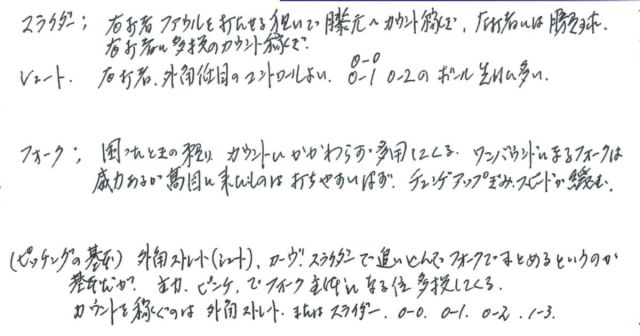 スライダー; 右打者 ファウルを打たせる狙いで膝元へカウント稼ぐ、左打者には勝負球.
右打者に多投のカウント稼ぐ.
シュート. 右打者、外角低目のコントロールよい. 0-0 0-1 0-2の ボール 先行に多い.
フォーク; 困ったときの頼り カウントにかかわらず多用してくる. ワンバウンドになるフォークは
威力あるが高目に来たものは打ちやすいはず. チェンヂアップぎみ、スピードが緩む.
(ピッチングの基本) 外角ストレート(シュート)、カーヴ、スライダーで追い込んで フォークでまとめるというのが
基本だが、主力、ピンチ、でフォーク主体になる位 多投してくる.
カウントを稼ぐのは 外角ストレート、またはスライダー. 0-0. 0-1. 0-2. 1-3.